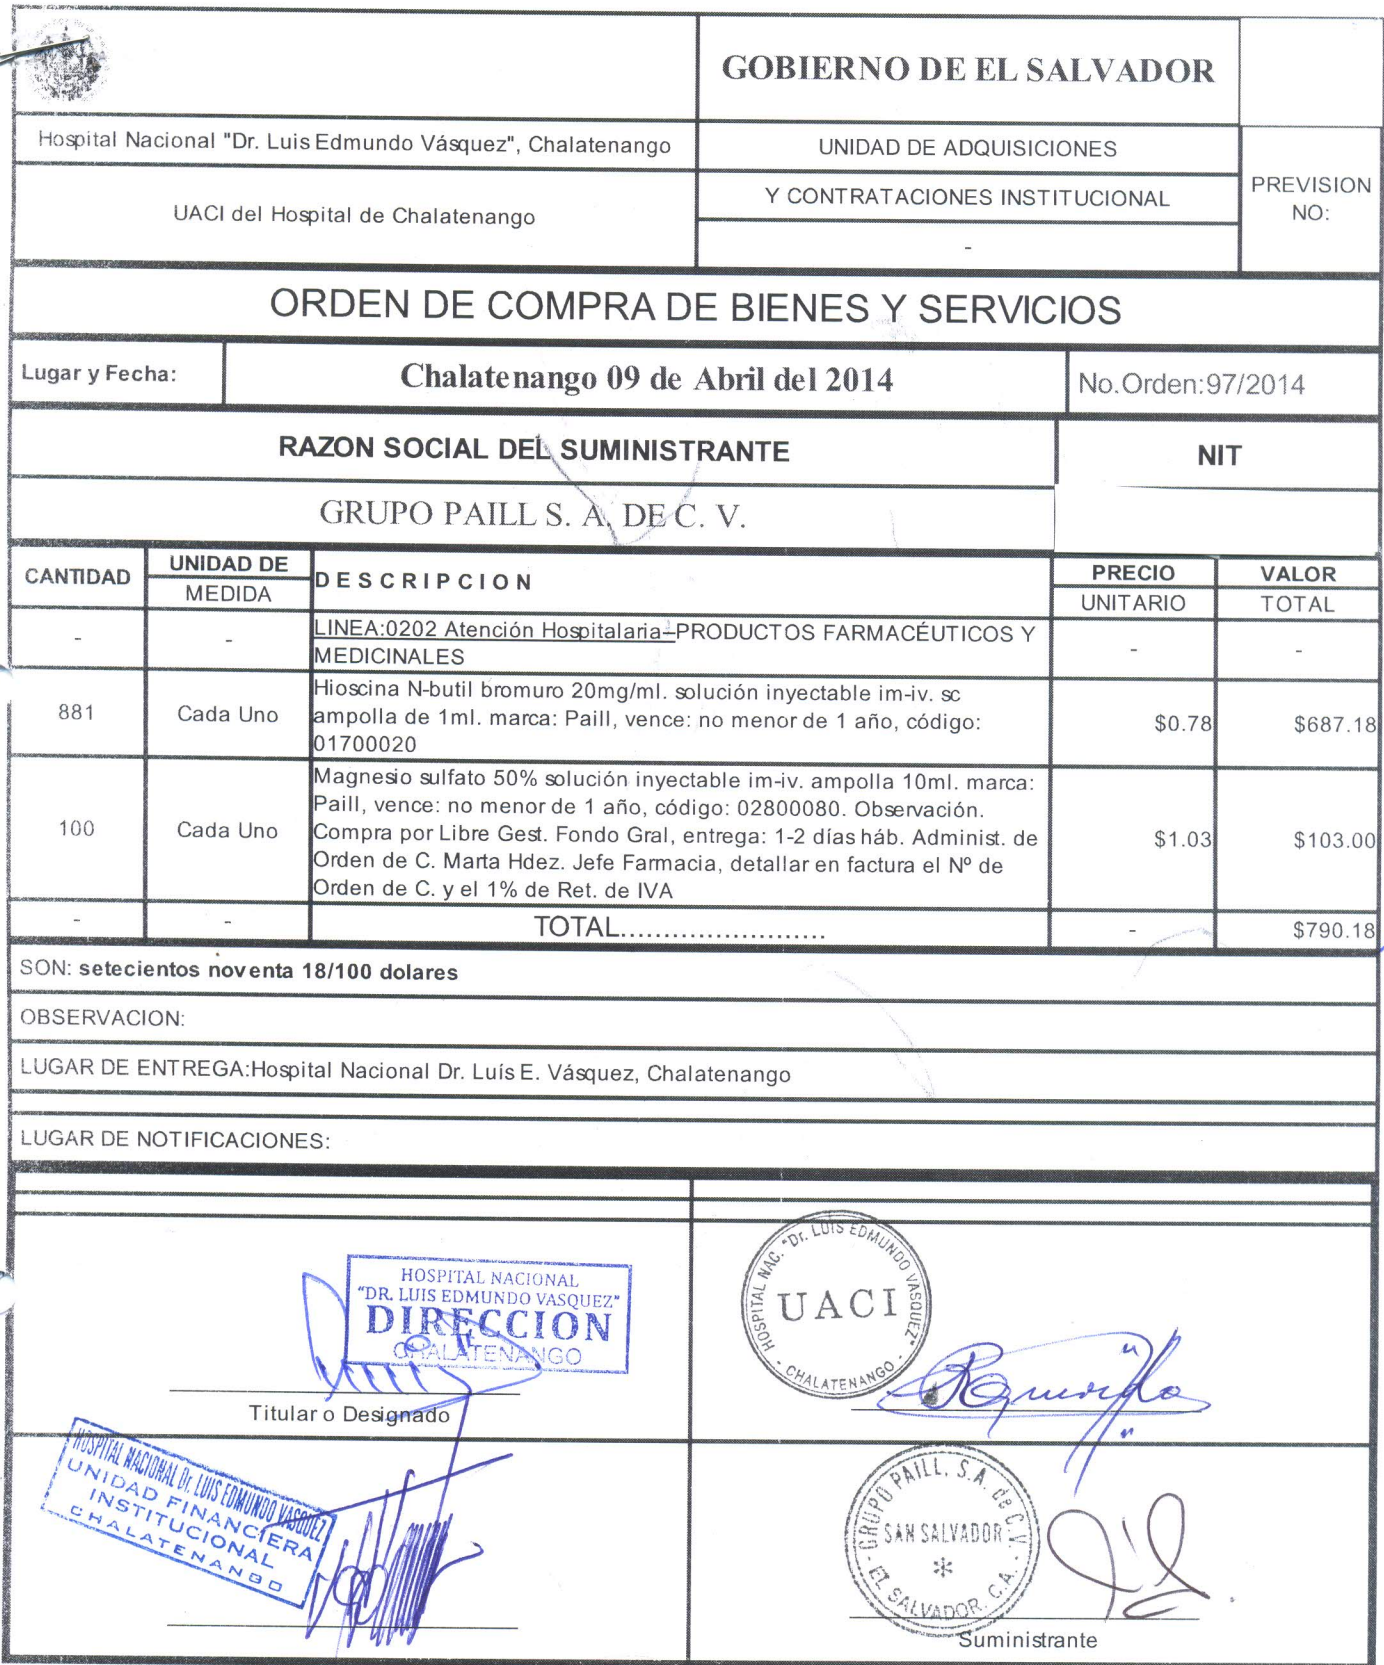 GOBIERNO DE EL SALVADOR
Hospital Nacional "Dr. Luis Edmundo Vásquez", Chalatenango
UNIDAD DE ADQUISICIONES
UACI del Hospital de Chalatenango
Y CONTRATACIONES INSTITUCIONAL
-
PREVISION
NO:
ORDEN DE COMPRA DE BIENES Y SERVICIOS
Lugar y Fecha:
Chalatenango 09 de Abril del 2014
No.Orden:97/2014
RAZON SOCIAL DEL SUMINISTRANTE
NIT
GRUPO PAILL S. A. DE C. V.
CANTIDAD
UNIDAD DE
MEDIDA
DESCRIPCION
PRECIO
UNITARIO
VALOR
TOTAL
-
-
LINEA:0202 Atención Hospitalaria--PRODUCTOS FARMACÉUTICOS Y
MEDICINALES
-
-
881
Cada Uno
Hioscina N-butil bromuro 20mg/ml. solución inyectable im-iv. sc
ampolla de 1ml. marca: Paill, vence: no menor de 1 año, código:
01700020
$0.78
$687.18
100
Cada Uno
Magnesio sulfato 50% solución inyectable im-iv. ampolla 10ml. marca:
Paill, vence: no menor de 1 año, código: 02800080. Observación.
Compra por Libre Gest. Fondo Gral, entrega: 1-2 días háb. Administ. de
Orden de C. Marta Hdez. Jefe Farmacia, detallar en factura el Nº de
Orden de C. y el 1% de Ret. de IVA
$1.03
$103.00
-
-
TOTAL........................
-
$790.18
SON: setecientos noventa 18/100 dolares
OBSERVACION:
LUGAR DE ENTREGA:Hospital Nacional Dr. Luís E. Vásquez, Chalatenango
LUGAR DE NOTIFICACIONES:
HOSPITAL NACIONAL
"DR. LUIS EDMUNDO VASQUEZ"
DIRECCION
CHALATENANGO
Titular o Designado
HOSPITAL NAC. "Dr. LUIS EDMUNDO VASQUEZ"
UACI
- CHALATENANGO -
HOSPITAL NACIONAL Dr. LUIS EDMUNDO VASQUEZ
UNIDAD FINANCIERA
INSTITUCIONAL
CHALATENANGO
GRUPO PAILL, S.A. de C.V.
SAN SALVADOR
*
EL SALVADOR, C.A.
Suministrante